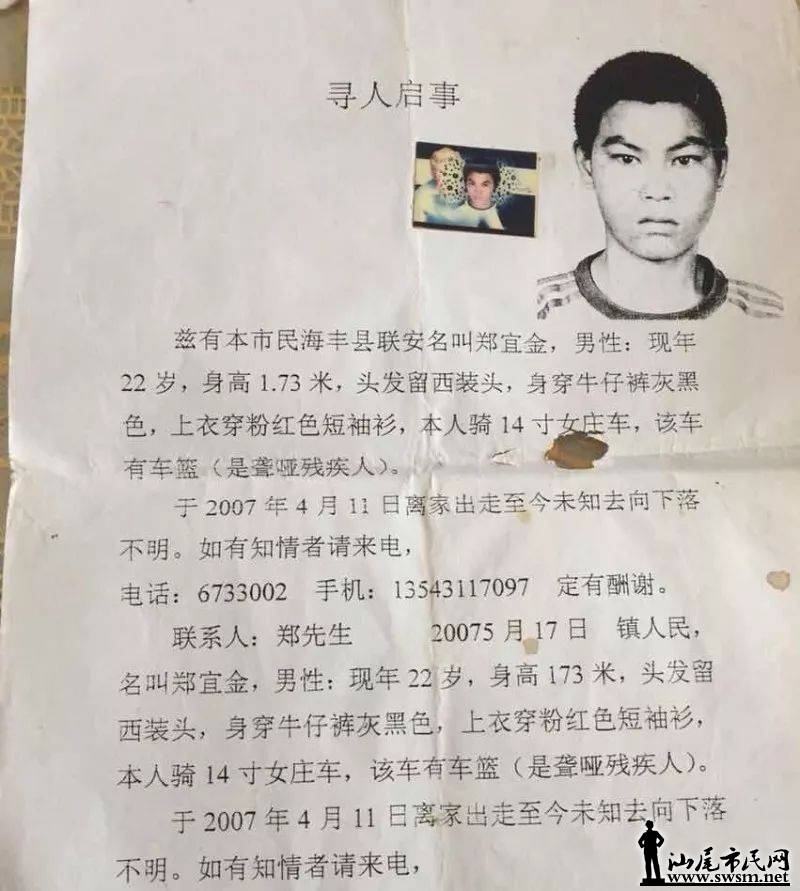 寻人启事
兹有本市民海丰县联安名叫郑宜金，男性：现年
22 岁，身高 1.73 米，头发留西装头，身穿牛仔裤灰黑
色，上衣穿粉红色短袖衫，本人骑 14 寸女庄车，该车
有车篮（是聋哑残疾人）。
于 2007 年 4 月 11 日离家出走至今未知去向下落
不明。如有知情者请来电，
电话：6733002 手机：13543117097 定有酬谢。
联系人：郑先生 20075 月 17 日 镇人民，
名叫郑宜金，男性：现年 22 岁，身高 173 米，头发留
西装头，身穿牛仔裤灰黑色，上衣穿粉红色短袖衫，
本人骑 14 寸女庄车，该车有车篮（是聋哑残疾人）。
于 2007 年 4 月 11 日离家出走至今未知去向下落
不明。如有知情者请来电，
汕尾市民网
www.swsm.net